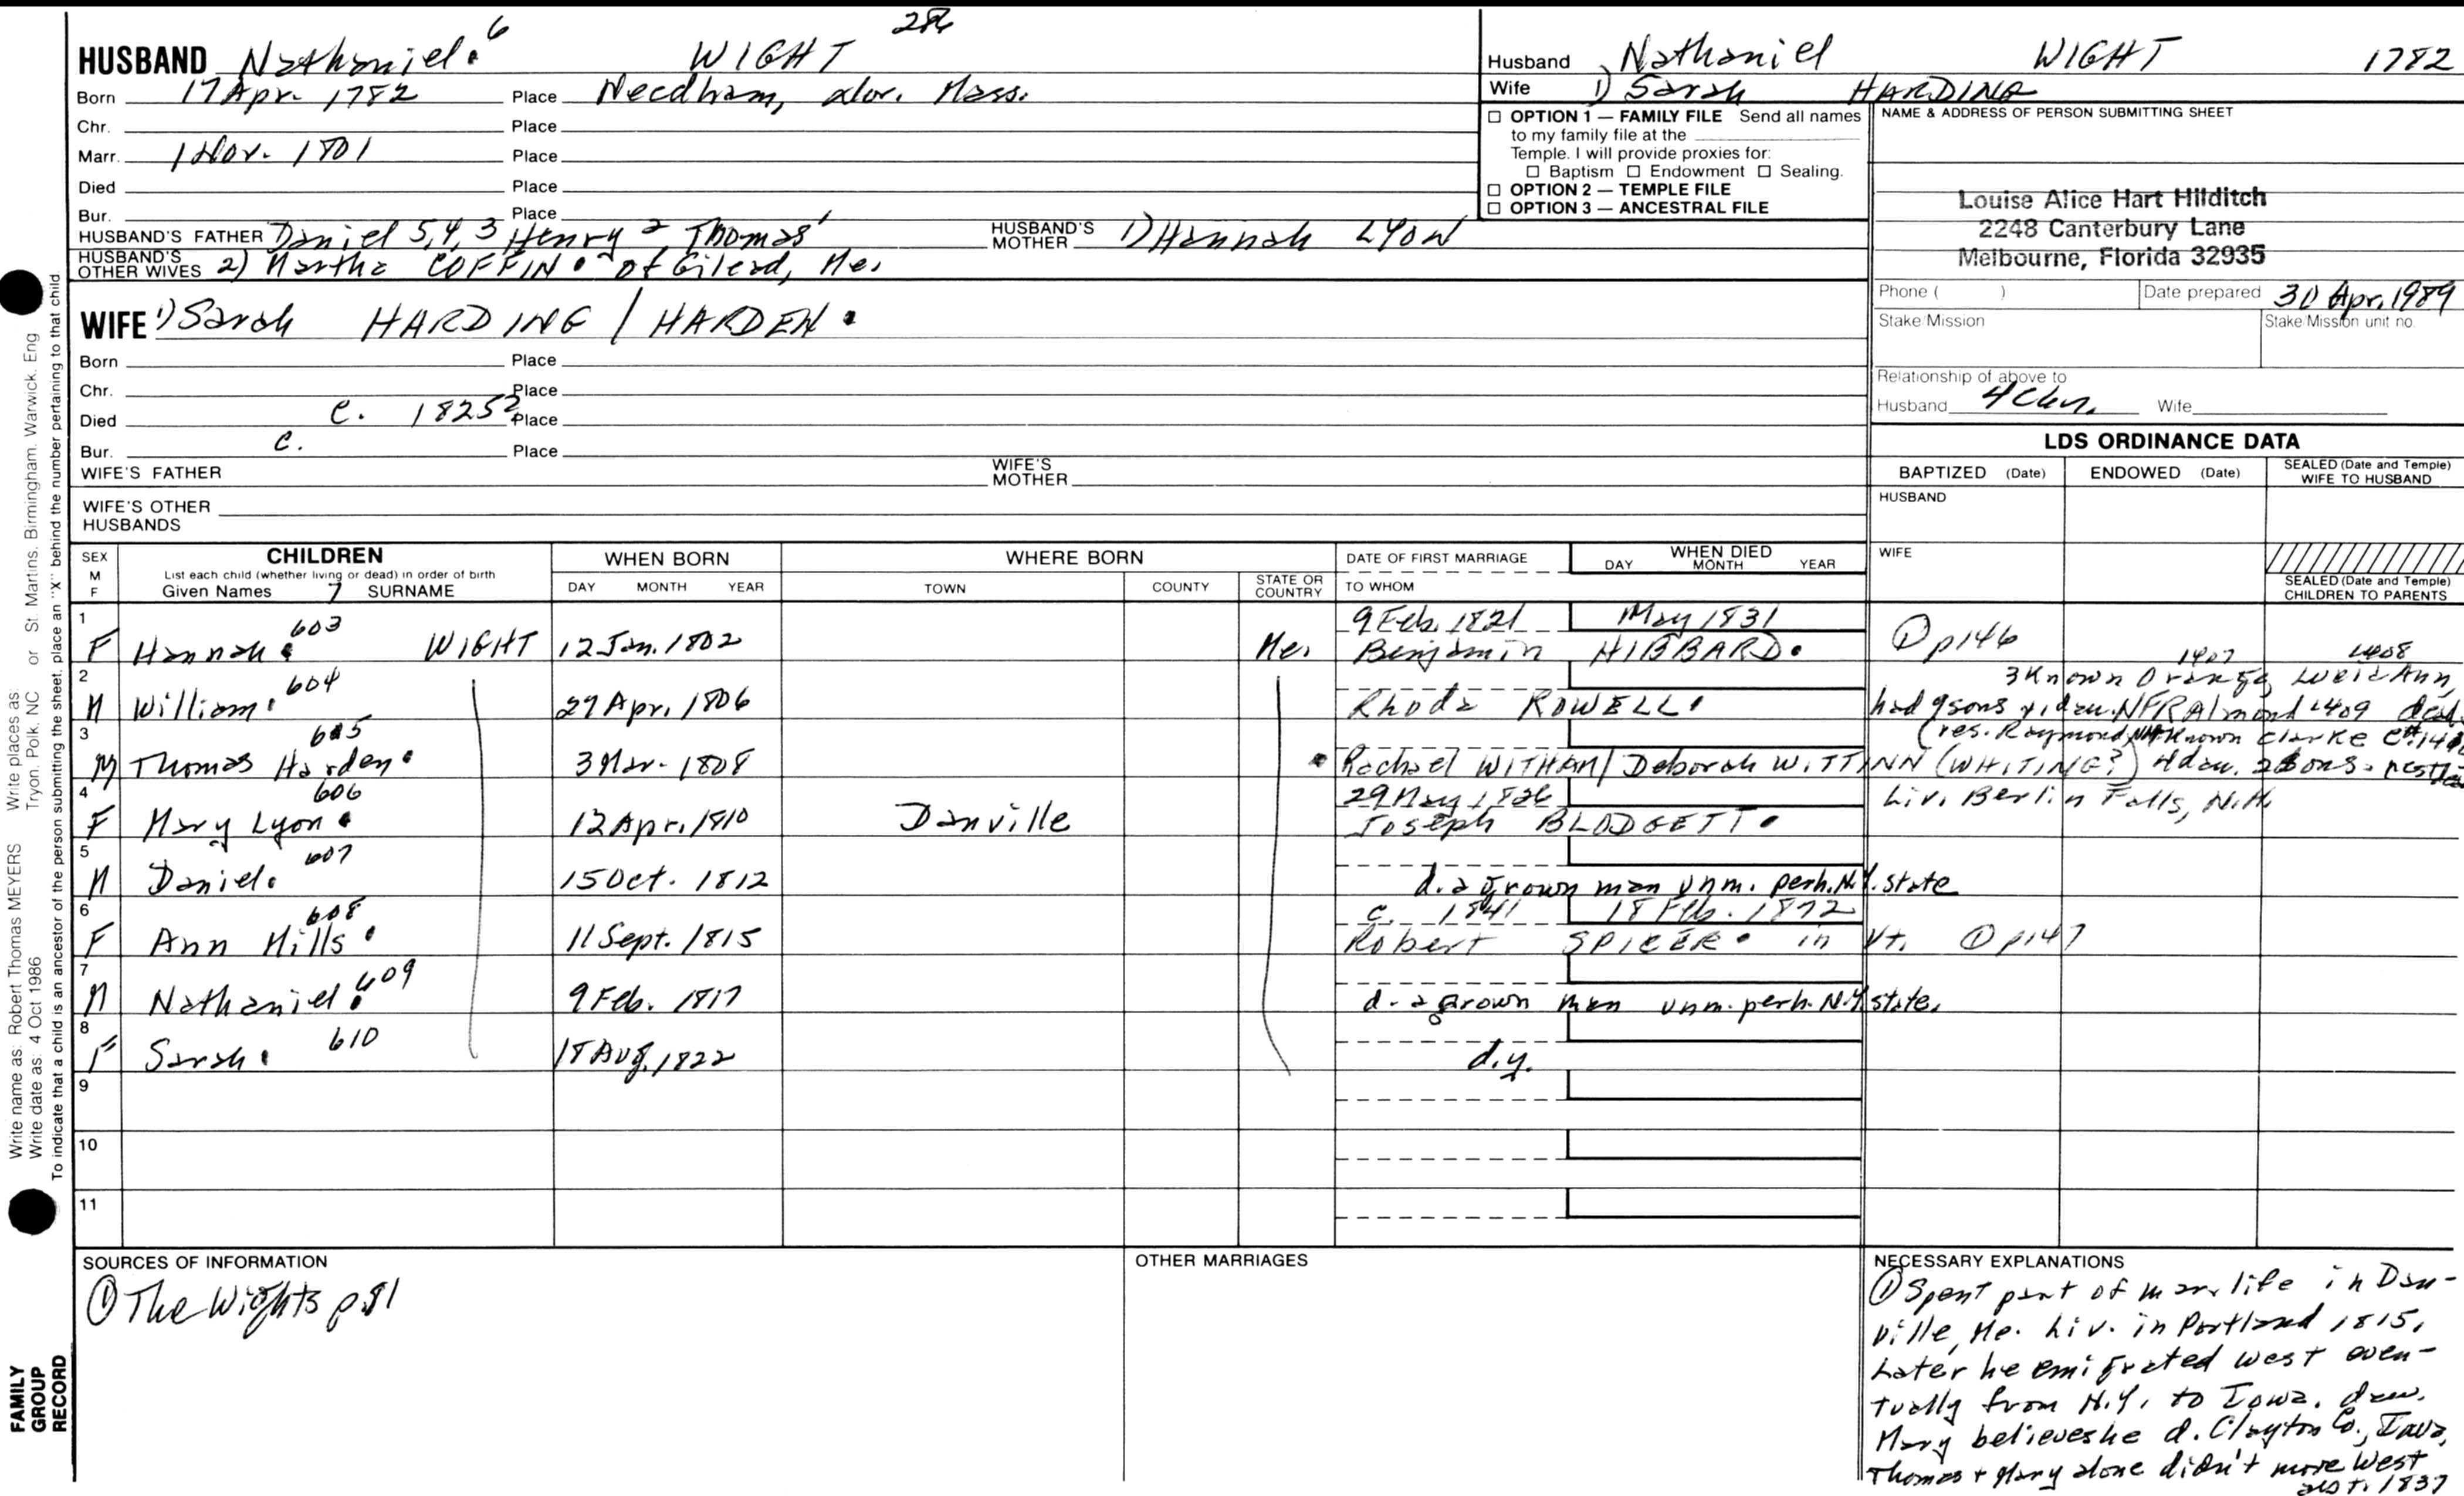 286
HUSBAND Nathaniel. 6 WIGHT
Born 17 Apr. 1782 Place Needham, Nor. Mass.
Chr. Place
Marr. 1 Nov. 1801 Place
Died Place
Bur. Place
HUSBAND'S FATHER Daniel 5,4,3 Henry 2 Thomas 1 HUSBAND'S MOTHER 1) Hannah LYON
HUSBAND'S OTHER WIVES 2) Martha COFFIN. of Gilead, Me.
Husband Nathaniel WIGHT 1782
Wife 1) Sarah HARDING
☐ OPTION 1 — FAMILY FILE Send all names
to my family file at the
Temple. I will provide proxies for:
☐ Baptism ☐ Endowment ☐ Sealing.
☐ OPTION 2 — TEMPLE FILE
☐ OPTION 3 — ANCESTRAL FILE
NAME & ADDRESS OF PERSON SUBMITTING SHEET
Louise Alice Hart Hilditch
2248 Canterbury Lane
Melbourne, Florida 32935
Phone ( ) Date prepared 30 Apr. 1989
Stake/Mission Stake/Mission unit no.
Relationship of above to
Husband 4 C Wife
WIFE 1) Sarah HARDING / HARDEN.
Born Place
Chr. Place
Died c. 1825? Place
Bur. c. Place
WIFE'S FATHER WIFE'S MOTHER
WIFE'S OTHER HUSBANDS
LDS ORDINANCE DATA
BAPTIZED (Date) ENDOWED (Date) SEALED (Date and Temple) WIFE TO HUSBAND
HUSBAND
WIFE
SEALED (Date and Temple) CHILDREN TO PARENTS
SEX M F CHILDREN WHEN BORN WHERE BORN DATE OF FIRST MARRIAGE WHEN DIED
List each child (whether living or dead) in order of birth
Given Names 7 SURNAME DAY MONTH YEAR TOWN COUNTY STATE OR COUNTRY TO WHOM DAY MONTH YEAR
1 603 9 Feb. 1821 May 1831
F Hannah. WIGHT 12 Jan. 1802 Me. Benjamin HIBBARD. ① p146
1407 1408
2 604 3 Known Ann,
M William. 27 Apr. 1806 Rhoda ROWELL. had 9 sons 1 dau. NFR Almond 1409 dead
3 605 (res. Raymond Known Clarke
M Thomas Harden. 3 Mar. 1808 Rachael WITHAM / Deborah WITTINN (WHITING?) 4 dau. 2 sons.
4 606 29 May 1826 Liv. Berlin Falls, N.H.
F Mary Lyon. 12 Apr. 1810 Danville Joseph BLODGETT.
5 607
M Daniel. 15 Oct. 1812 d. a grown man unm. perh. N.Y. state
6 608 c. 1841 18 Feb. 1872
F Ann Mills. 11 Sept. 1815 Robert SPICER. in Vt. ① p147
7 609
M Nathaniel. 9 Feb. 1817 d. a grown man unm. perh. N.Y. state.
8 610
F Sarah. 18 Aug. 1822 d.y.
9
10
11
SOURCES OF INFORMATION
① The Wights p.81
OTHER MARRIAGES
NECESSARY EXPLANATIONS
① Spent part of mar. life in Dan-
ville, Me. Liv. in Portland 1815,
Later he emigrated west even-
tually from N.Y. to Iowa. dau.
Mary believes he d. Clayton Co., Iowa,
Thomas + Mary alone didn't move West
1837
Write name as: Robert Thomas MEYERS Write places as: Tryon, Polk, NC or St. Martins, Birmingham, Warwick, Eng
Write date as: 4 Oct 1986
To indicate that a child is an ancestor of the person submitting the sheet, place an "X" behind the number pertaining to that child
FAMILY
GROUP
RECORD